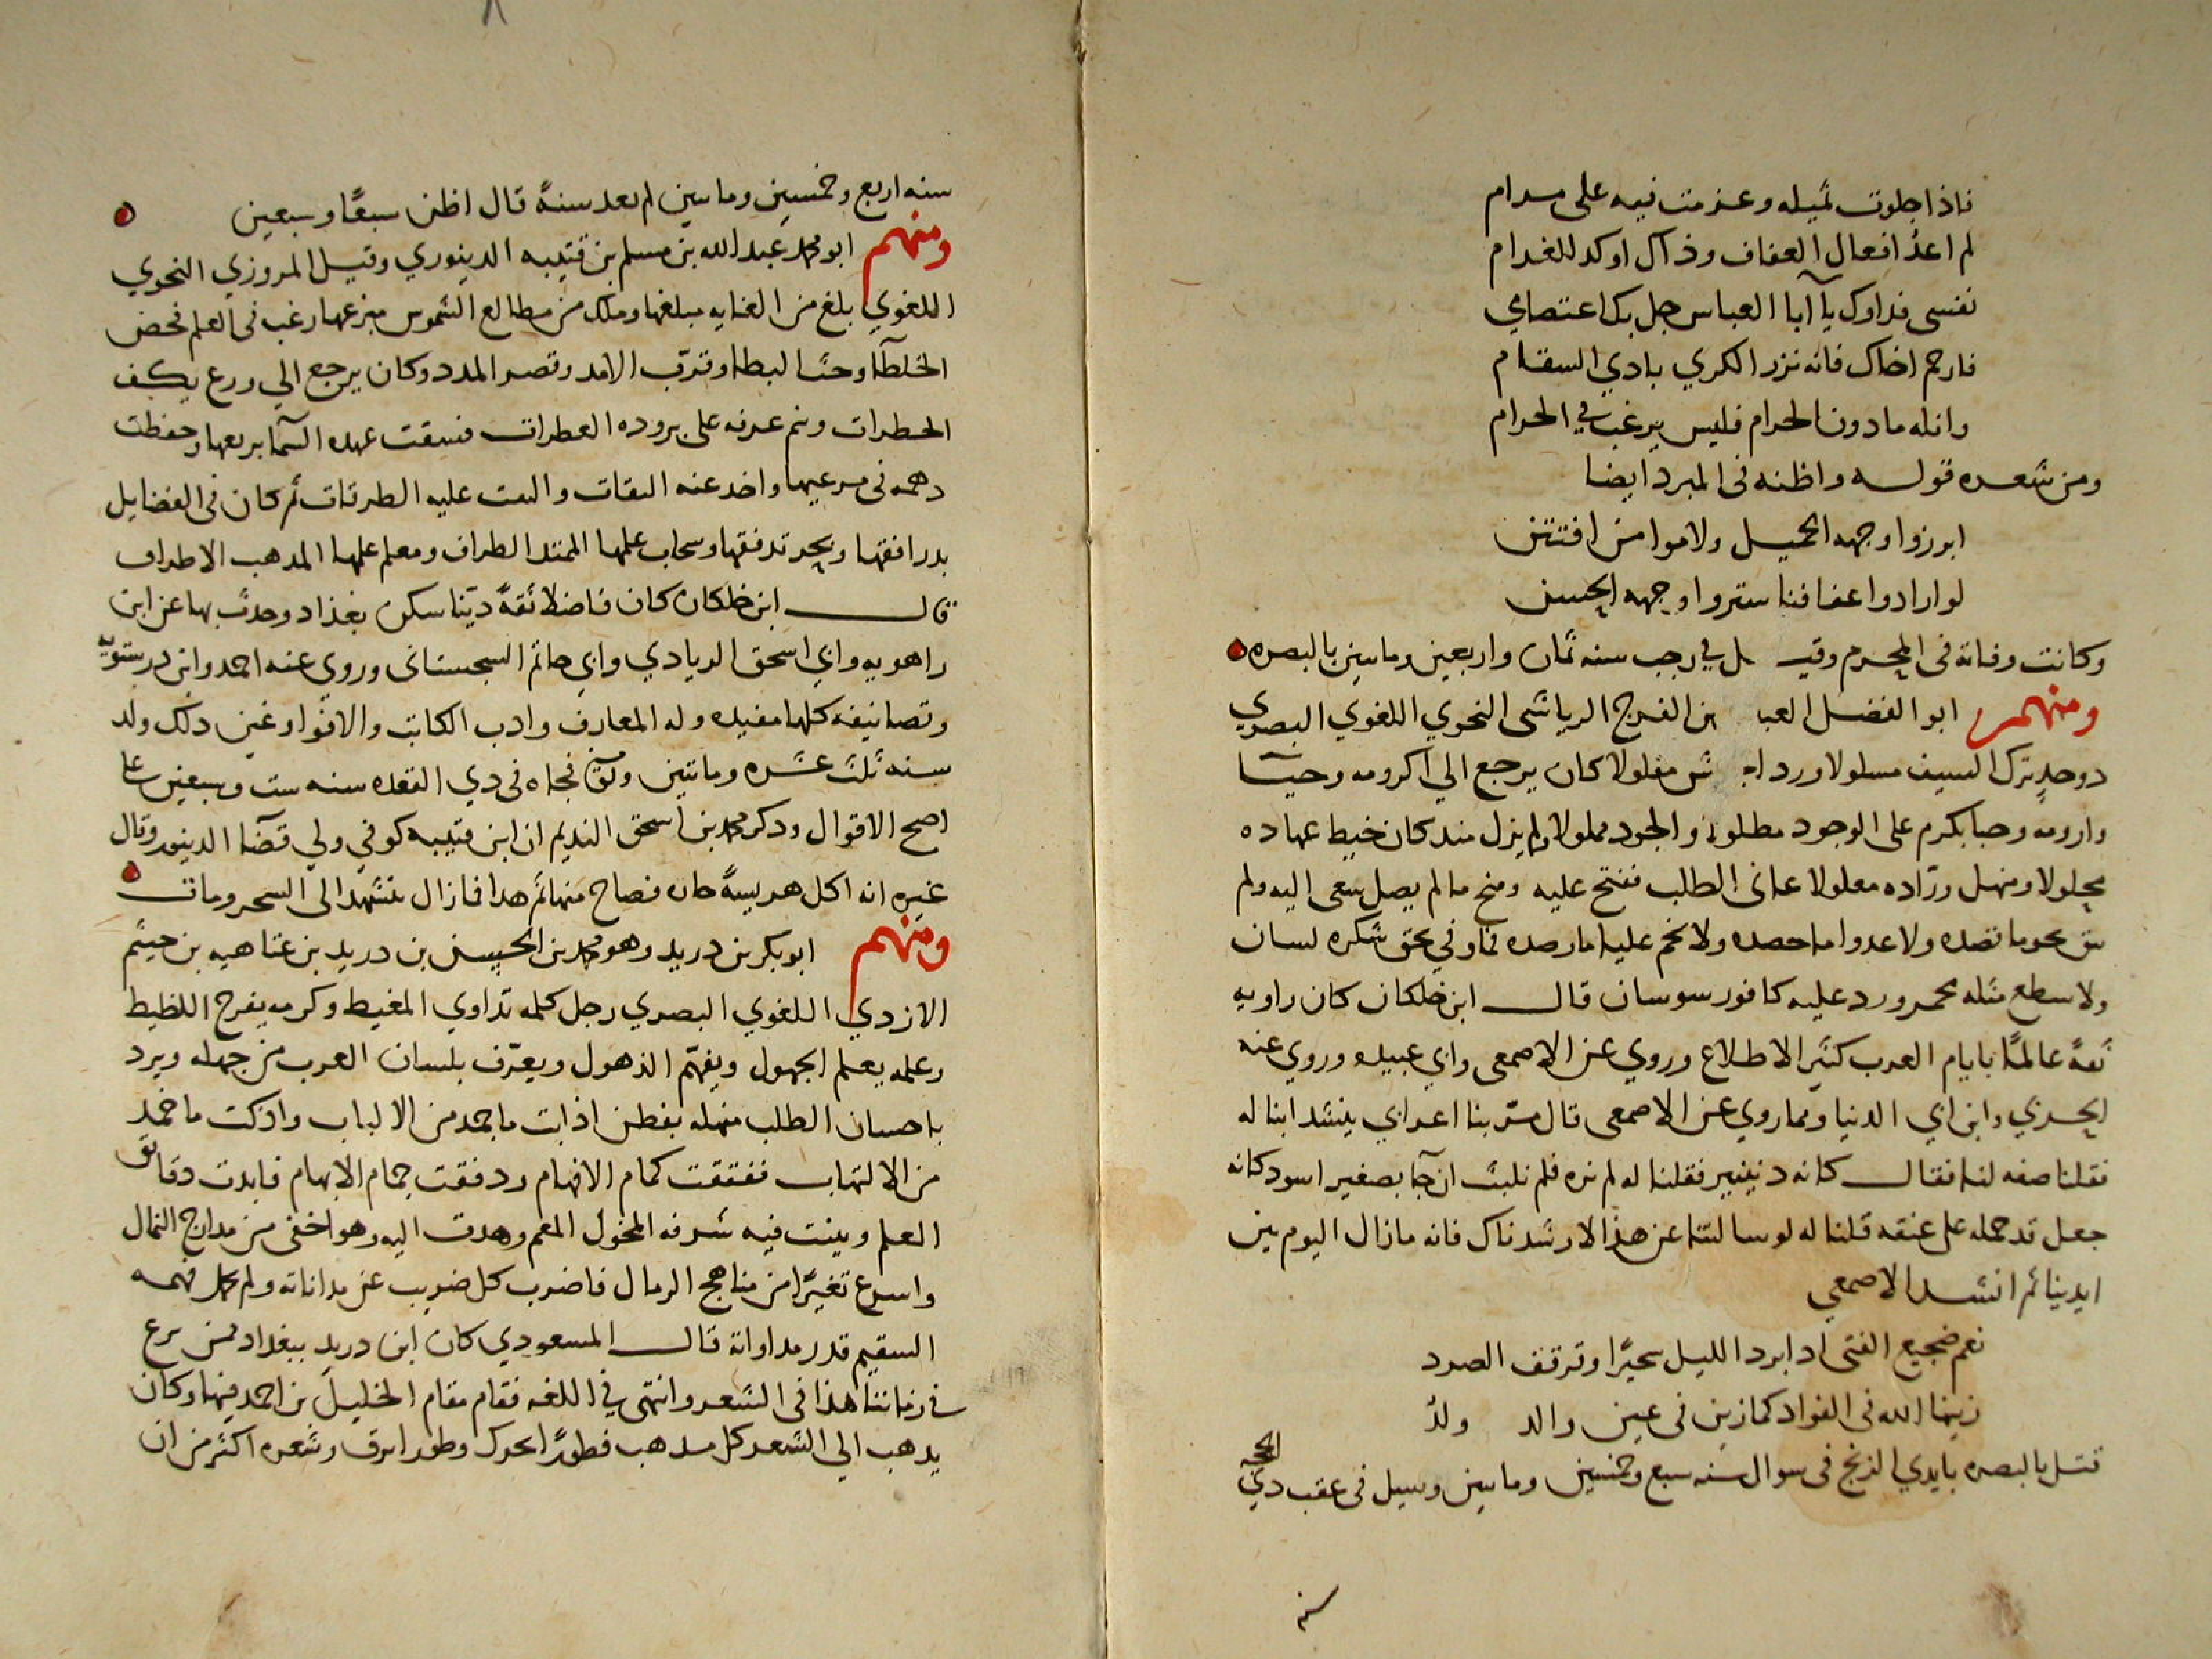 فاذا خلوت بمثله وعزمت فيه على مرام
لم اعد افعال العفاف وذاك اوكد للغرام
نفسى فداوك يا ابا العباس جل بك اعتصامي
فارحم اخاك فانه نزر الكري بادي السقام
وانله مادون الحرام فليس يرغب في الحرام
ومن شعره قوله واظنه فى المبرد ايضا
ابرزوا وجهه الجميل ولاموا من افتتن
لو ارادوا عفافنا ستروا وجهه الحسن
وكانت وفاته فى المحرم وقيل في رجب سنه ثمان واربعين وماتين بالبصره
ومنهم ابو الفضل العبا بن الفرج الرياشى النحوي اللغوي البصري
دوحد يترك السيف مسلولا ورد مفلولا كان يرجع الي اكرومه وحيا
وارومه وحبا بكرم على الوجود مطلو والجود مملولا ولم يزل مند كان خيط عهاده
محلولا ومنهل وراده معلولا عانى الطلب ففتح عليه ومنح مالم يصل سعى اليه ولم
نحو ما قصده ولا عدوا ما حصده ولا نجم عليه ما رصده فما وفي بحق شكره لسان
ولا سطع مثله بحمر ورد عليه كافور سوسان قال ابن خلكان كان راويه
ثقةً عالمًا بايام العرب كثير الاطلاع وروي عن الاصمعى وابي عبيده وروي عنه
الحربي وابن ابي الدنيا ومما روي عن الاصمعى قال مر بنا اعرابي ينشد ابنا له
فقلنا صفه لنا فقال كانه دنينير فقلنا له لم نره فلم نلبث ان جا بصغير اسود كانه
جعل قد حمله على عنقه قلنا له لو سالتنا عن هذا لارشدناك فانه مازال اليوم بين
ايدينا ثم انشد الاصمعي
نعم ضجيع الفتى اد ابرد الليل سحيرًا وقرقف الصرد
زينها الله فى الفواد كما زين فى عين والد ولدُ
قتل بالبصره بايدي الزنج فى سوال سنه سبع وخمسين وماتين وسيل فى عقب دي
الحجه
سنه
سنه اربع وخمسين وماتين لم بعد سنةً قال اظن سبعًا وسبعين
ومنهم ابو محمد عبد الله بن مسلم بن قتيبه الدينوري وقيل المروزي النحوي
اللغوي بلغ من الغايه مبلغها وملك من مطالع الشموس مبزعها رغب فى العلم فحض
الخلطآ وحث البطا وقرب الامد وقصر المدد وكان يرجع الي ورع يكف
الخطرات ونم عرفه على بروده العطرات فسقت عهده السما بريعها وحفظت
دهمه فى مرعيها واخد عنه الثقات والتفت عليه الطرقات ثم كان فى الفضايل
بدر افقها وبحر تدفقها وسحاب علمها الممتد الطراف ومعلم علمها المدهب الاطراف
قال ابن خلكان كان فاضلا ثقةً دينا سكن بغداد وحدث بها عن ابن
راهويه وابي اسحق الزيادي وابي حاتم السجستانى وروي عنه احمد وابن درستويه
وتصانيفه كلها مفيده وله المعارف وادب الكاتب والاقوا وغير دلك ولد
سنه ثلث عشره وماتين وتوفي فجاه فى دي القعده سنه ست وسبعين عا
اصح الاقوال ودكر محمد بن اسحق النديم ان ابن قتيبه كوفي ولي قضآ الدينور وقال
غيره انه اكل هريسةً حاره فصاح منها ثم هدا فما زال يتشهد الى السحر ومات
ومنهم ابو بكر بن دريد وهو محمد بن الحسن بن دريد بن عتاهيه بن حيثم
الازدي اللغوي البصري رجل كلمه تداوي المغيط وكرمه يفرج اللظيظ
وعلمه يعلم الجهول ويفهّم الذهول ويعرّف بلسان العرب من جهله ويرد
باحسان الطلب منهله بفطن اذابت ما جمد من الالباب واذكت ما خمد
من الالتهاب ففتقت كمام الافهام ودفقت جمام الابهام فابدت دقائق
العلم وبينت فيه شرفه المخول المعم وهدت اليه وهو اخفى من مدارج النمال
واسرع تغيّرًا من مناهج الرمال فاضرب كل ضريب عن مداناته ولم فهمه
السقيم قدر مداواته قال المسعودي كان ابن دريد ببغداد ممن برع
في زماننا هذا فى الشعر وانتهى في اللغه فقام مقام الخليل بن احمد فيها وكان
يدهب الي الشعر كل مدهب فطورًا يجزل وطورا يرق وشعره اكثر من ان